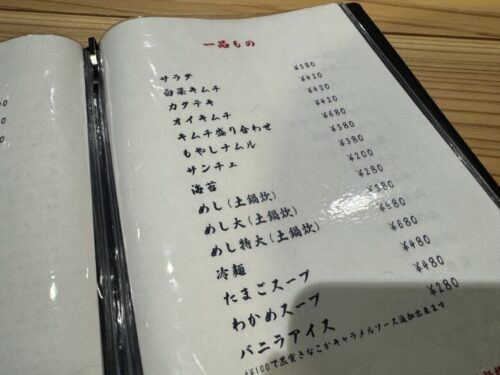 一品もの
サラダ ¥380
白菜キムチ ¥420
カクテキ ¥420
オイキムチ ¥420
キムチ盛り合わせ ¥680
もやしナムル ¥380
サンチェ ¥380
海苔 ¥200
めし(土鍋炊) ¥280
めし大(土鍋炊) ¥380
めし特大(土鍋炊)
冷麺 ¥680
たまごスープ ¥480
わかめスープ ¥480
バニラアイス ¥280
¥100で黒蜜きなこかキャラメルソース追加出来ます